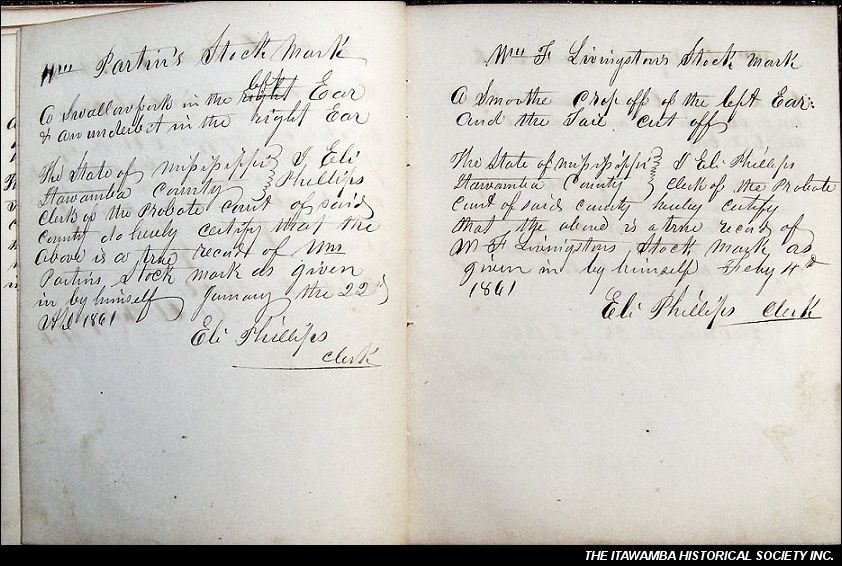 Wm Partin's Stock Mark
A Swallowfork in the left right Ear
& an underbit in the right Ear
The State of Mississippi } I Eli
Itawamba County } Phillips
Clerk of the Probate Court of said
County do hereby certify that the
above is a true record of Wm
Partins Stock mark as given
in by himself January the 22d
1861
Eli Phillips
Clerk
Wm F Livingston's Stock Mark
A Smoothe Crop off of the left Ear:
and the Tail cut off
The State of Mississippi } I Eli Phillips
Itawamba County } Clerk of the Probate
Court of said County hereby certify
that the above is a true record of
W F Livingstons Stock Mark as
given in by himself Feby
1861
Eli Phillips Clerk
THE ITAWAMBA HISTORICAL SOCIETY INC.